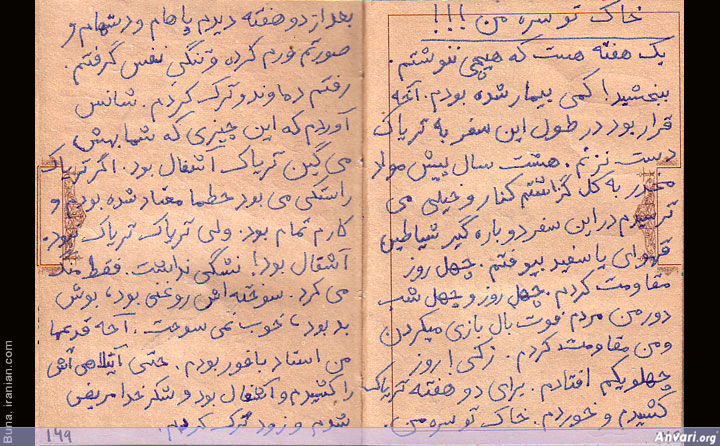 خاک تو سره من !!!
یک هفته هست که هیچی ننوشتم.
ببخشید! کمی بیمار شده بودم. آخه
قرار بود در طول این سفر به تریاک
دست نزنم. هشت سال پیش مواد
مخدر به کل گزاشتم کنار و خیلی می
ترسیدم در این سفر دوباره گیر شیاطین
قهوه‌ای یا سفید بیوفتم. چهل روز
مقاومت کردم. چهل روز و چهل شب
دور من مردم فوت بال بازی میکردن
و من مقاومت کردم. زکی! روز
چهلویکم افتادم. برای دو هفته تریاک
کشیدم و خوردم. خاک تو سره من.
بعد از دو هفته دیدم پاهام و دستهام و
صورتم ورم کرده و تنگی نفس گرفتم.
رفتم دماوند و ترک کردم. شانس
آوردم که این چیزی که شما بهش
می گین تریاک آشغال بود. اگر تریاک
راستکی می بود حطما معتاد شده بودم و
کارم تمام بود. ولی تریاک تریاک نبود.
آشغال بود! نشگی نداشت. فقط منگ
می کرد. سوخته اش روغنی بود، بوش
بد بود، خوب نمی سوخت. آخه قدیما
من استاد بافور بودم. حتی
را کشیدم و آشغال بود و شکر خدا مریض
شدم و زود ترک کردم.
149
Buna. iranian.com
Anvari.org